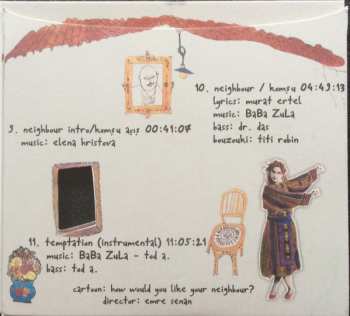 10. neighbour / komşu 04:43:13
lyrics: murat ertel
music: BaBa ZuLa
bass: dr. das
bouzouki: titi robin
9. neighbour intro/komşu açış 00:41:07
music: elena hristova
11. temptation (instrumental) 11:05:21
music: BaBa ZuLa - tod a.
bass: tod a.
cartoon: how would you like your neighbour?
director: emre senan